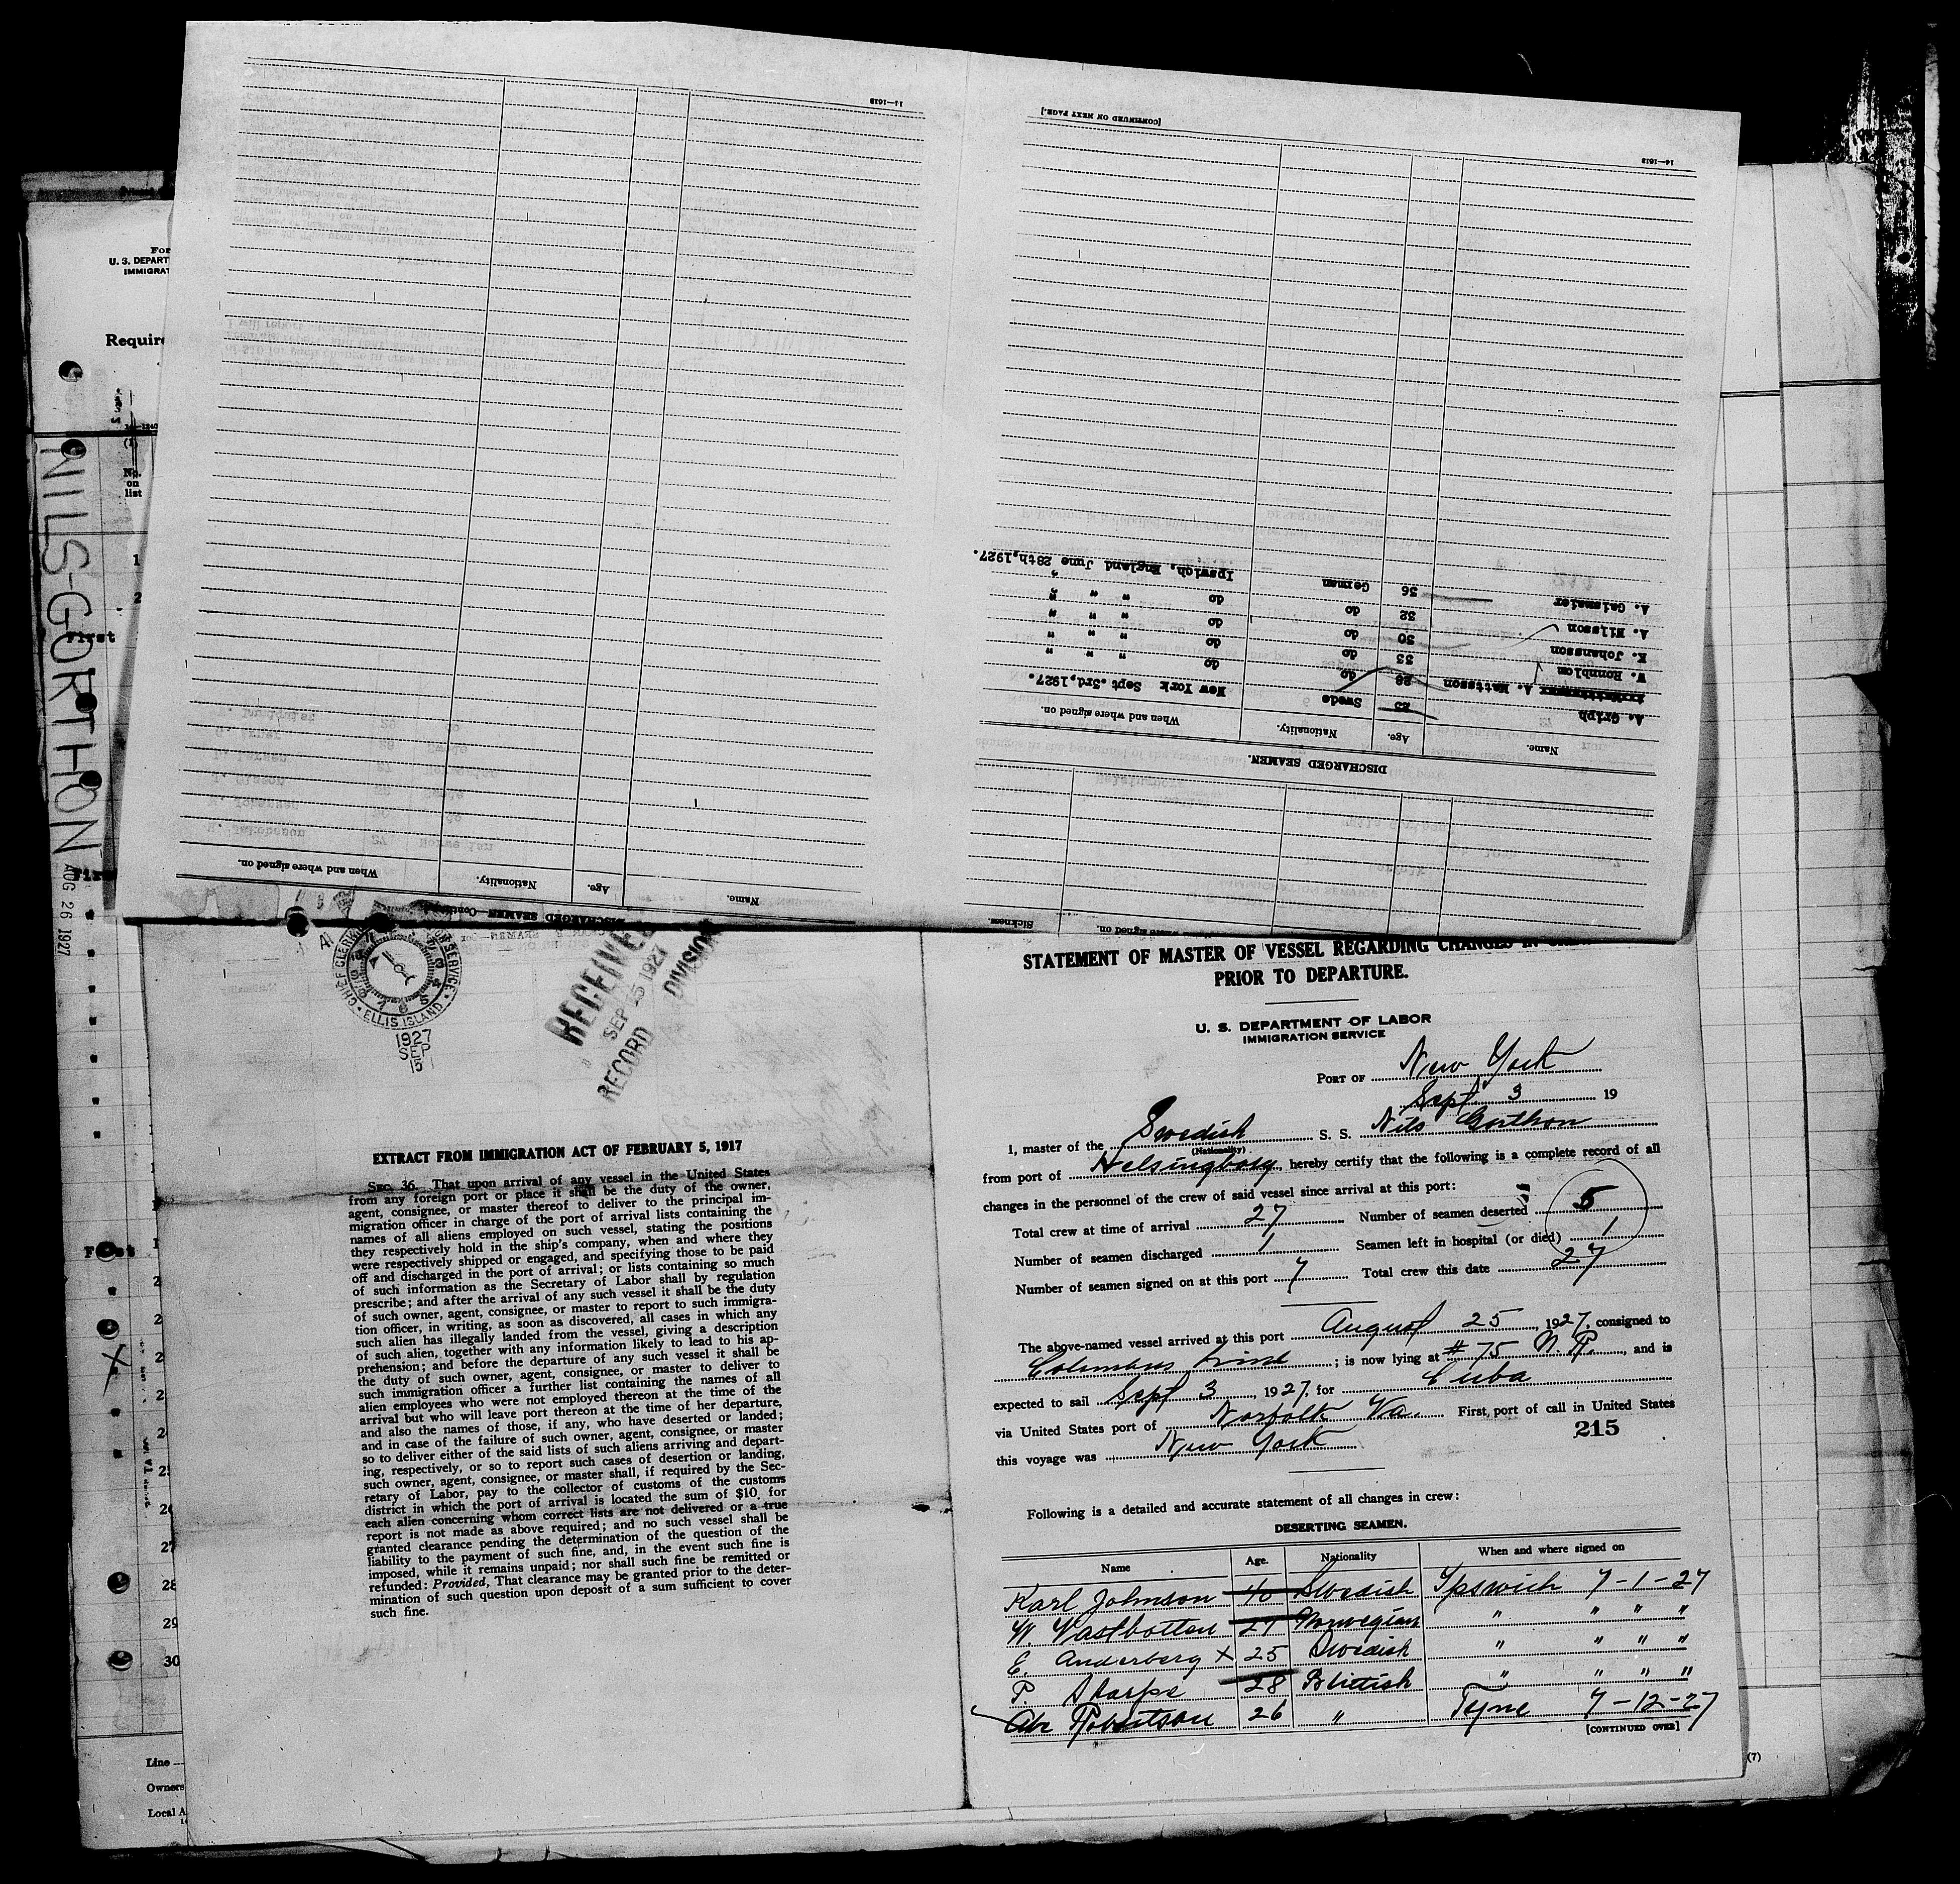 14—1613
[CONTINUED ON NEXT PAGE.]
14—1613
A. Geismeier 36 German Ipswich, England June 28th, 1927.
A. Nilsson 32 do do " " "
K. Johansson 30 do do " " "
W. Ronnblom 33 do do " " "
A. Mattsson 28 do do " " "
A. Griph 23 Swede New York Sept. 3rd, 1927.
Name. Age. Nationality. When and where signed on.
DISCHARGED SEAMEN.
Name. Age. Nationality. When and where signed on.
DISCHARGED SEAMEN—Continued.
Sickness.
U. S. DEPART
IMMIGRAT
Require
No.
on
list
NILS-GORTHON
AUG 26 1927
First
CHIEF CLERK
ELLIS ISLAND
1927
SEP
15
RECEIVED
SEP 15 1927
RECORD DIVISION
EXTRACT FROM IMMIGRATION ACT OF FEBRUARY 5, 1917
SEC. 36. That upon arrival of any vessel in the United States
from any foreign port or place it shall be the duty of the owner,
agent, consignee, or master thereof to deliver to the principal im-
migration officer in charge of the port of arrival lists containing the
names of all aliens employed on such vessel, stating the positions
they respectively hold in the ship's company, when and where they
were respectively shipped or engaged, and specifying those to be paid
off and discharged in the port of arrival; or lists containing so much
of such information as the Secretary of Labor shall by regulation
prescribe; and after the arrival of any such vessel it shall be the duty
of such owner, agent, consignee, or master to report to such immigra-
tion officer, in writing, as soon as discovered, all cases in which any
such alien has illegally landed from the vessel, giving a description
of such alien, together with any information likely to lead to his ap-
prehension; and before the departure of any such vessel it shall be
the duty of such owner, agent, consignee, or master to deliver to
such immigration officer a further list containing the names of all
alien employees who were not employed thereon at the time of the
arrival but who will leave port thereon at the time of her departure,
and also the names of those, if any, who have deserted or landed;
and in case of the failure of such owner, agent, consignee, or master
so to deliver either of the said lists of such aliens arriving and depart-
ing, respectively, or so to report such cases of desertion or landing,
such owner, agent, consignee, or master shall, if required by the Sec-
retary of Labor, pay to the collector of customs of the customs
district in which the port of arrival is located the sum of $10 for
each alien concerning whom correct lists are not delivered or a true
report is not made as above required; and no such vessel shall be
granted clearance pending the determination of the question of the
liability to the payment of such fine, and, in the event such fine is
imposed, while it remains unpaid; nor shall such fine be remitted or
refunded: Provided, That clearance may be granted prior to the deter-
mination of such question upon deposit of a sum sufficient to cover
such fine.
STATEMENT OF MASTER OF VESSEL REGARDING CHANGES IN
PRIOR TO DEPARTURE.
U. S. DEPARTMENT OF LABOR
IMMIGRATION SERVICE
PORT OF New York
Sept. 3 19
I, master of the Swedish S. S. Nils Gorthon
(Nationality)
from port of Helsingborg, hereby certify that the following is a complete record of all
changes in the personnel of the crew of said vessel since arrival at this port:
Total crew at time of arrival 27 Number of seamen deserted 5
Number of seamen discharged 1 Seamen left in hospital (or died) 1
Number of seamen signed on at this port 7 Total crew this date 27
The above-named vessel arrived at this port August 25, 1927, consigned to
Columbus Line; is now lying at # 75 N. R., and is
expected to sail Sept 3, 1927, for Cuba
via United States port of Norfolk Va. First port of call in United States
this voyage was New York
215
Following is a detailed and accurate statement of all changes in crew:
DESERTING SEAMEN.
Name Age. Nationality When and where signed on
Karl Johnson 40 Swedish Ipswich 7-1-27
W. Vastbotten 27 Norwegian " " " "
E. Anderberg x 25 Swedish " " " "
P. Sharpe 28 British " " " "
Abr Robertson 26 " Tyne 7-12-27
[CONTINUED OVER]
Line
Owners
Local A
(7)